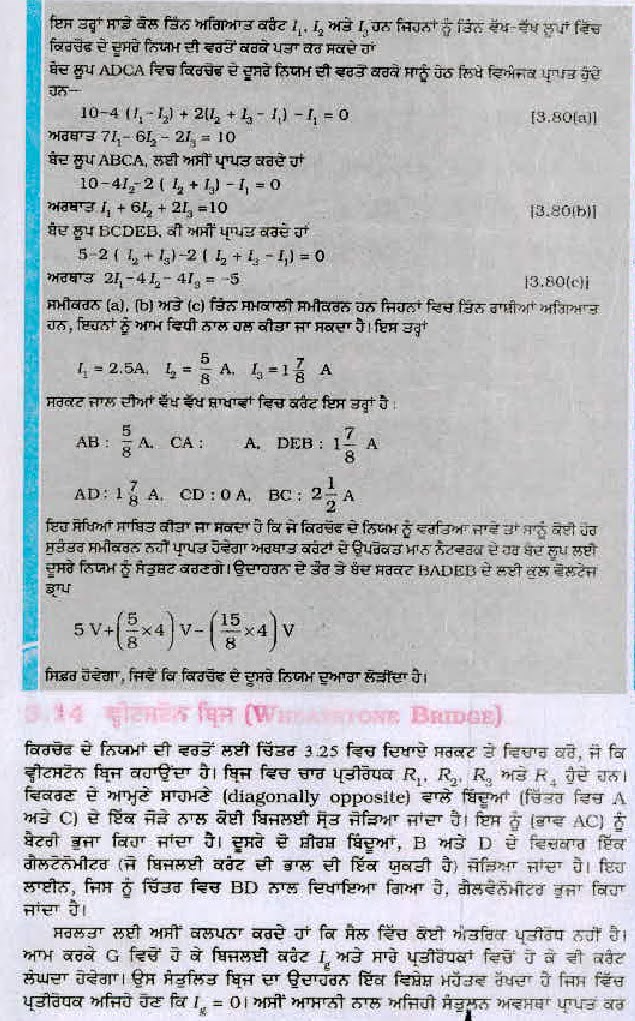 ਇਸ ਤਰ੍ਹਾਂ ਸਾਡੇ ਕੋਲ ਤਿੰਨ ਅਗਿਆਤ ਕਰੰਟ I₁, I₂ ਅਤੇ I₃ ਹਨ ਜਿਹਨਾਂ ਨੂੰ ਤਿੰਨ ਵੱਖ-ਵੱਖ ਲੂਪਾਂ ਵਿੱਚ
ਕਿਰਚੋਫ ਦੇ ਦੂਸਰੇ ਨਿਯਮ ਦੀ ਵਰਤੋਂ ਕਰਕੇ ਪਤਾ ਕਰ ਸਕਦੇ ਹਾਂ
ਬੰਦ ਲੂਪ ADCA ਵਿਚ ਕਿਰਚੋਫ ਦੇ ਦੂਸਰੇ ਨਿਯਮ ਦੀ ਵਰਤੋਂ ਕਰਕੇ ਸਾਨੂੰ ਹੇਠ ਲਿਖੇ ਵਿਅੰਜਕ ਪ੍ਰਾਪਤ ਹੁੰਦੇ
ਹਨ—
10–4 (I₁–I₂) + 2(I₂ + I₃ – I₁) – I₁ = 0 [3.80(a)]
ਅਰਥਾਤ 7I₁– 6I₂ – 2I₃ = 10
ਬੰਦ ਲੂਪ ABCA, ਲਈ ਅਸੀਂ ਪ੍ਰਾਪਤ ਕਰਦੇ ਹਾਂ
10–4I₂–2 ( I₂ + I₃) – I₁ = 0
ਅਰਥਾਤ I₁ + 6I₂ + 2I₃ =10 [3.80(b)]
ਬੰਦ ਲੂਪ BCDEB, ਕੀ ਅਸੀਂ ਪ੍ਰਾਪਤ ਕਰਦੇ ਹਾਂ
5–2 ( I₂ + I₃)–2 ( I₂ + I₃ – I₁) = 0
ਅਰਥਾਤ 2I₁–4I₂– 4I₃ = –5 [3.80(c)]
ਸਮੀਕਰਨ (a), (b) ਅਤੇ (c) ਤਿੰਨ ਸਮਕਾਲੀ ਸਮੀਕਰਨ ਹਨ ਜਿਹਨਾਂ ਵਿਚ ਤਿੰਨ ਰਾਸ਼ੀਆਂ ਅਗਿਆਤ
ਹਨ, ਇਹਨਾਂ ਨੂੰ ਆਮ ਵਿਧੀ ਨਾਲ ਹਲ ਕੀਤਾ ਜਾ ਸਕਦਾ ਹੈ। ਇਸ ਤਰ੍ਹਾਂ
I₁ = 2.5A, I₂ = 5/8 A, I₃ = 1 7/8 A
ਸਰਕਟ ਜਾਲ ਦੀਆਂ ਵੱਖ ਵੱਖ ਸ਼ਾਖਾਵਾਂ ਵਿਚ ਕਰੰਟ ਇਸ ਤਰ੍ਹਾਂ ਹੈ :
AB : 5/8 A, CA : A, DEB : 1 7/8 A
AD : 1 7/8 A, CD : 0 A, BC : 2 1/2 A
ਇਹ ਸੌਖਿਆਂ ਸਾਬਿਤ ਕੀਤਾ ਜਾ ਸਕਦਾ ਹੈ ਕਿ ਜੇ ਕਿਰਚੋਫ ਦੇ ਨਿਯਮ ਨੂੰ ਵਰਤਿਆ ਜਾਵੇ ਤਾਂ ਸਾਨੂੰ ਕੋਈ ਹੋਰ
ਸੁਤੰਤਰ ਸਮੀਕਰਨ ਨਹੀਂ ਪ੍ਰਾਪਤ ਹੋਵੇਗਾ ਅਰਥਾਤ ਕਰੰਟਾਂ ਦੇ ਉਪਰੋਕਤ ਮਾਨ ਨੈਟਵਰਕ ਦੇ ਹਰ ਬੰਦ ਲੂਪ ਲਈ
ਦੂਸਰੇ ਨਿਯਮ ਨੂੰ ਸੰਤੁਸ਼ਟ ਕਰਣਗੇ। ਉਦਾਹਰਨ ਦੇ ਤੌਰ ਤੇ ਬੰਦ ਸਰਕਟ BADEB ਦੇ ਲਈ ਕੁਲ ਵੋਲਟੇਜ
ਡ੍ਰਾਪ
5 V+(5/8×4) V–(15/8×4) V
ਸਿਫ਼ਰ ਹੋਵੇਗਾ, ਜਿਵੇਂ ਕਿ ਕਿਰਚੋਫ ਦੇ ਦੂਸਰੇ ਨਿਯਮ ਦੁਆਰਾ ਲੋੜੀਂਦਾ ਹੈ।
3.14 ਵ੍ਹੀਟਸਟੋਨ ਬ੍ਰਿਜ (WHEATSTONE BRIDGE)
ਕਿਰਚੋਫ ਦੇ ਨਿਯਮਾਂ ਦੀ ਵਰਤੋਂ ਲਈ ਚਿੱਤਰ 3.25 ਵਿਚ ਦਿਖਾਏ ਸਰਕਟ ਤੇ ਵਿਚਾਰ ਕਰੋ, ਜੋ ਕਿ
ਵ੍ਹੀਟਸਟੋਨ ਬ੍ਰਿਜ ਕਹਾਉਂਦਾ ਹੈ। ਬ੍ਰਿਜ ਵਿਚ ਚਾਰ ਪ੍ਰਤੀਰੋਧਕ R₁, R₂, R₃ ਅਤੇ R₄ ਹੁੰਦੇ ਹਨ।
ਵਿਕਰਣ ਦੇ ਆਮ੍ਹਣੇ ਸਾਹਮਣੇ (diagonally opposite) ਵਾਲੇ ਬਿੰਦੂਆਂ (ਚਿੱਤਰ ਵਿਚ A
ਅਤੇ C) ਦੇ ਇੱਕ ਜੋੜੇ ਨਾਲ ਕੋਈ ਬਿਜਲਈ ਸ੍ਰੋਤ ਜੋੜਿਆ ਜਾਂਦਾ ਹੈ। ਇਸ ਨੂੰ (ਭਾਵ AC) ਨੂੰ
ਬੈਟਰੀ ਭੁਜਾ ਕਿਹਾ ਜਾਂਦਾ ਹੈ। ਦੂਸਰੇ ਦੋ ਸ਼ੀਰਸ਼ ਬਿੰਦੂਆਂ, B ਅਤੇ D ਦੇ ਵਿਚਕਾਰ ਇੱਕ
ਗੈਲਵੇਨੋਮੀਟਰ (ਜੋ ਬਿਜਲਈ ਕਰੰਟ ਦੀ ਭਾਲ ਦੀ ਇੱਕ ਯੁਕਤੀ ਹੈ) ਜੋੜਿਆ ਜਾਂਦਾ ਹੈ। ਇਹ
ਲਾਈਨ, ਜਿਸ ਨੂੰ ਚਿੱਤਰ ਵਿਚ BD ਨਾਲ ਦਿਖਾਇਆ ਗਿਆ ਹੈ, ਗੈਲਵੇਨੋਮੀਟਰ ਭੁਜਾ ਕਿਹਾ
ਜਾਂਦਾ ਹੈ।
ਸਰਲਤਾ ਲਈ ਅਸੀਂ ਕਲਪਨਾ ਕਰਦੇ ਹਾਂ ਕਿ ਸੈਲ ਵਿੱਚ ਕੋਈ ਅੰਤਰਿਕ ਪ੍ਰਤੀਰੋਧ ਨਹੀਂ ਹੈ।
ਆਮ ਕਰਕੇ G ਵਿਚੋਂ ਹੋ ਕੇ ਬਿਜਲਈ ਕਰੰਟ Ig ਅਤੇ ਸਾਰੇ ਪ੍ਰਤੀਰੋਧਕਾਂ ਵਿਚੋਂ ਹੋ ਕੇ ਵੀ ਕਰੰਟ
ਲੰਘਦਾ ਹੋਵੇਗਾ। ਉਸ ਸੰਤੁਲਿਤ ਬ੍ਰਿਜ ਦਾ ਉਦਾਹਰਨ ਇੱਕ ਵਿਸ਼ੇਸ਼ ਮਹੱਤਵ ਰੱਖਦਾ ਹੈ ਜਿਸ ਵਿੱਚ
ਪ੍ਰਤੀਰੋਧਕ ਅਜਿਹੇ ਹੋਣ ਕਿ Ig = 0। ਅਸੀਂ ਆਸਾਨੀ ਨਾਲ ਅਜਿਹੀ ਸੰਤੁਲਨ ਅਵਸਥਾ ਪ੍ਰਾਪਤ ਕਰ